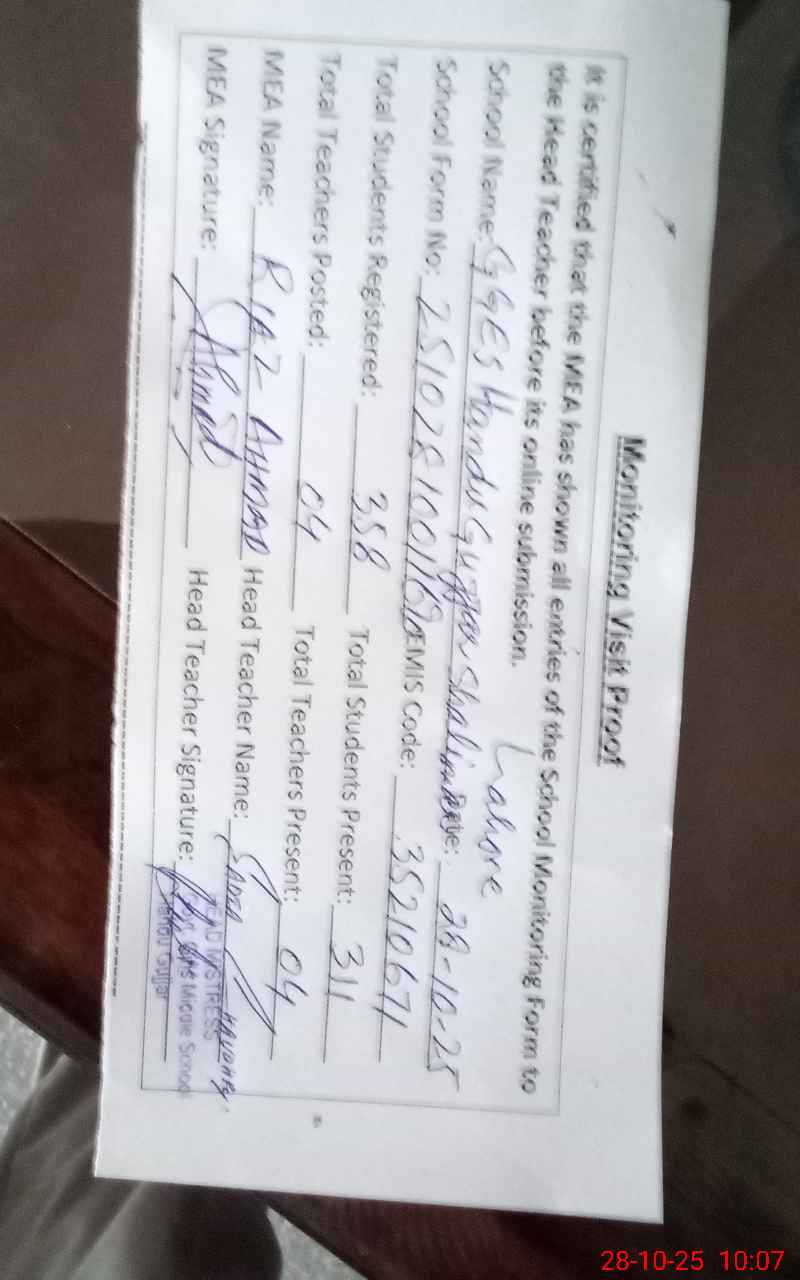 Monitoring Visit Proof
It is certified that the MEA has shown all entries of the School Monitoring Form to
the Head Teacher before its online submission.
Lahore
School Name: GGES Handu Gujjar Shalimar Date: 28-10-25
School Form No: EMIS Code: 35210671
Total Students Registered: 358 Total Students Present: 311
Total Teachers Posted: 04 Total Teachers Present: 04
MEA Name: RIAZ AHMAD Head Teacher Name:
MEA Signature: Ahmad Head Teacher Signature:
HEAD MISTRESS
Govt. Girls Middle School
Handu Gujjar
28-10-25 10:07